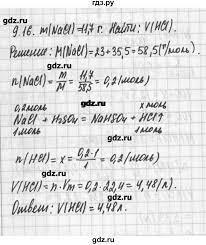 9.16. m(NaCl)=11,7 г. Найти: V(HCl).
Решение: M(NaCl)=23+35,5=58,5(г/моль)
n(NaCl) = m/M = 11,7/58,5 = 0,2(моль)
0,2моль x моль
NaCl + H2SO4 = NaHSO4 + HCl↑
1моль 1моль
n(HCl) = x = 0,2·1/1 = 0,2(моль)
V(HCl) = n·Vm = 0,2·22,4 = 4,48(л)
Ответ: V(HCl) = 4,48л.